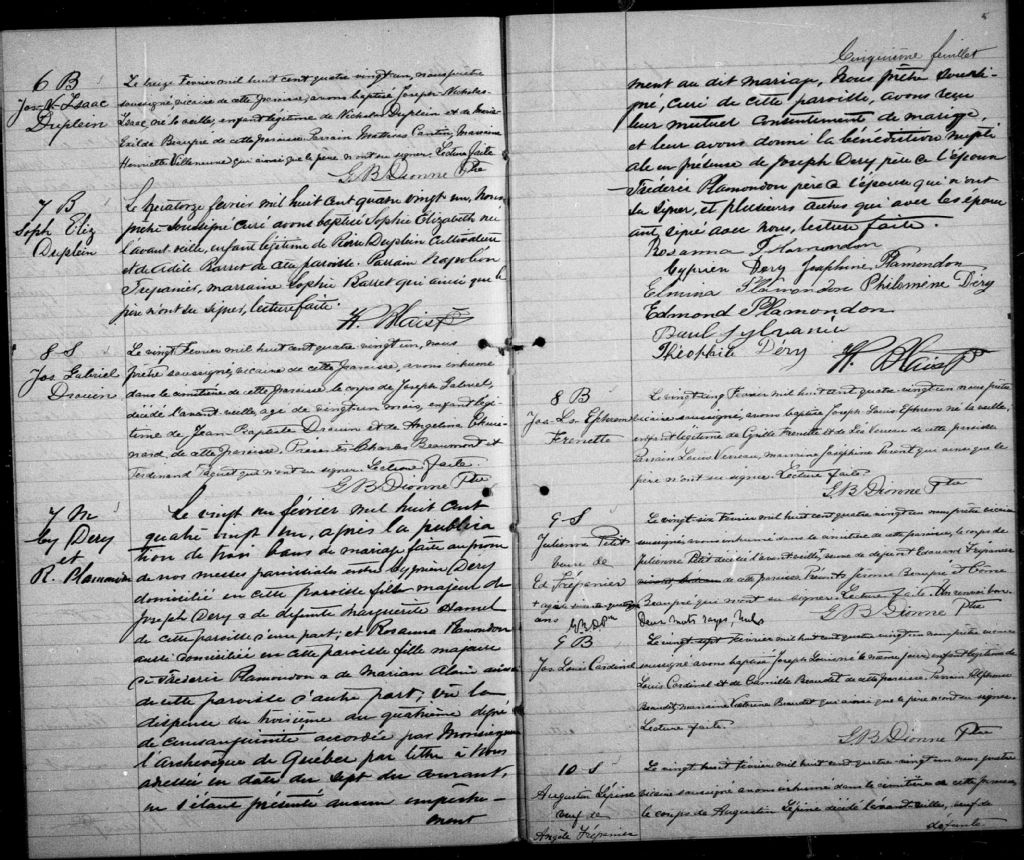 6 B
Jos. N. Isaac
Duplein
Le treize Fevrier mil huit cent quatre vingt un, nous prêtre
soussigné, vicaire de cette paroisse, avons baptisé Joseph-Nicholas-
Isaac, né la veille, enfant légitime de Nicholas Duplein et de
Exilda Beaupré de cette paroisse. Parrain Cantin, Marraine
Henriette Villeneuve qui ainsi que le père n'ont su signer. Lecture faite
G B Dionne Ptre
7 B
Soph Eliz
Duplein
Le quatorze fevrier mil huit cent quatre vingt un, Nous
prêtre soussigné Curé avons baptisé Sophie Elizabeth née
l'avant veille, enfant légitime de Pierre Duplein Cultivateur
et de Adèle Barret de cette paroisse. Parrain Napoleon
Trepanier, marraine Sophie Barret qui ainsi que le
père n'ont su signer, lecture faite.
H. Blais Ptre
8 S
Jos Gabriel
Drouin
Le vingt Fevrier mil huit cent quatre vingt un, nous
prêtre soussigné, vicaire de cette paroisse, avons inhumé
dans le cimetière de cette paroisse le corps de Joseph Gabriel,
décédé l'avant-veille, age de vingt un mois, enfant légi-
time de Jean Baptiste Drouin et de Angelina
de cette paroisse. Présents Charles Beaumont et
Ferdinand Paquet qui n'ont su signer. Lecture faite.
G B Dionne Ptre
7 M
Cy Dery
et
R. Plamondon
Le vingt un février mil huit cent
quatre vingt un, après la publica
tion de trois bans de mariage faite au prône
de nos messes paroissiales entre Cyprien Dery
domicilié en cette paroisse fils majeur de
Joseph Dery & de defunte Marguerite Hamel
de cette paroisse d'une part; et Rosanna Plamondon
aussi domiciliée en cette paroisse fille majeure
de Fréderic Plamondon & de Marian Alain aussi
de cette paroisse d'autre part; vu la
dispense du troisième au quatrième degré
de consanguinité accordée par Monseigneur
l'archevêque de Québec par lettre à Nous
adressée en date du sept du courant,
ne s'étant présenté aucun empêche-
ment
Cinquième feuillet
ment au dit mariage, Nous prêtre soussi-
gné, curé de cette paroisse, avons reçu
leur mutuel consentement de mariage,
et leur avons donné la bénédiction nupti
ale en présence de Joseph Dery père de l'époux
Fréderic Plamondon père de l'épouse qui n'ont
su signer, et plusieurs autres qui avec les époux
ont signé avec nous, lecture faite.
Rosanna Plamondon
Cyprien Dery Josephine Plamondon
Elmina Plamondon Philomène Déry
Edmond Plamondon
Paul Sylvanie
Théophile Déry
H. Blais Ptre
8 B
Jos. Ls. Ephrem
Frenette
Le vingt cinq Fevrier mil huit cent quatre vingt un nous prêtre
vicaire soussigné, avons baptisé Joseph-Louis Ephrem né la veille,
enfant légitime de Cyrille Frenette et de Léa Verreau de cette paroisse
Parrain Louis Verreau, marraine Josephine Parent qui ainsi que le
père n'ont su signer. Lecture faite.
G B Dionne Ptre
9 S
Julienne Petit
veuve de
Ed Trépanier
+ agée de
ans
G B D Ptre
Le vingt-six Fevrier mil huit cent quatre vingt un nous prêtre vicaire
soussigné avons inhumé dans le cimetière de cette paroisse, le corps de
Julienne Petit décédée l'avant veille, veuve de defunt Edouard Trépanier
de cette paroisse. Présents Jérome Beaupré et Côme
Beaupré qui n'ont su signer. Lecture faite. Un renvoi bon.
Deux mots rayés nuls
G B Dionne Ptre
9 B
Jos. Louis Cardinal
Le vingt-sept Fevrier mil huit cent quatre-vingt un nous prêtre vicaire
soussigné avons baptisé Joseph Louis né le même jour, enfant légitime de
Louis Cardinal et de Camille Beaudet de cette paroisse. Parrain Alphonse
Beaudet, marraine Beaudet qui ainsi que le père n'ont su signer.
Lecture faite.
G B Dionne Ptre
10 S
Augustin Lépine
veuf de
Angèle Trépanier
Le vingt huit Fevrier mil huit cent quatre-vingt un nous prêtre
vicaire soussigné avons inhumé dans le cimetière de cette paroisse,
le corps de Augustin Lépine décédé l'avant-veille, veuf de
défunte